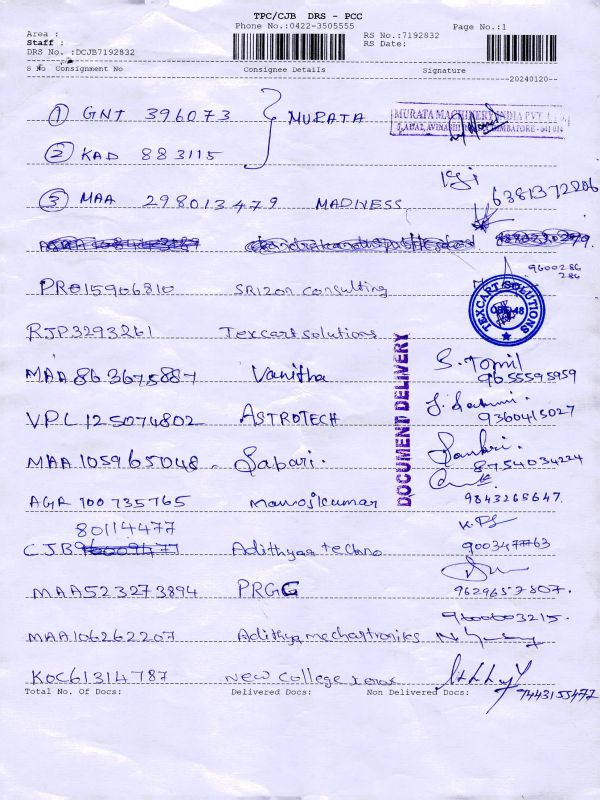 TPC/CJB DRS - PCC
Phone No.:0422-3505555
Page No.:1
Area :
Staff :
DRS No. :DCJB7192832
RS No.:7192832
RS Date:
S No Consignment No Consignee Details Signature
20240120
① GNT 396073 } MURATA
MURATA MACHINERY INDIA PVT
② KAD 883115
③ MAA 298013479 MADNESS
6381372206
PRO15906810 SRIZON Consulting
9600286
286
RJP3293261 Texcart solutions
TEXCART SOLUTIONS
DOCUMENT DELIVERY
MAA863675887 Vanitha S. Tamil
9655595959
VPL125074802 ASTROTECH
9360415027
MAA105965048 - Sabari.
8754034224
AGR 100735765 manojkumar
9843265647.
80114477
CJB Adithya techno
MAA523273894 PRGG
9629657807.
MAA106262207 Adithya mechartroniks
KOC61314787 New College xerox
7443155477
Total No. Of Docs: Delivered Docs: Non Delivered Docs: